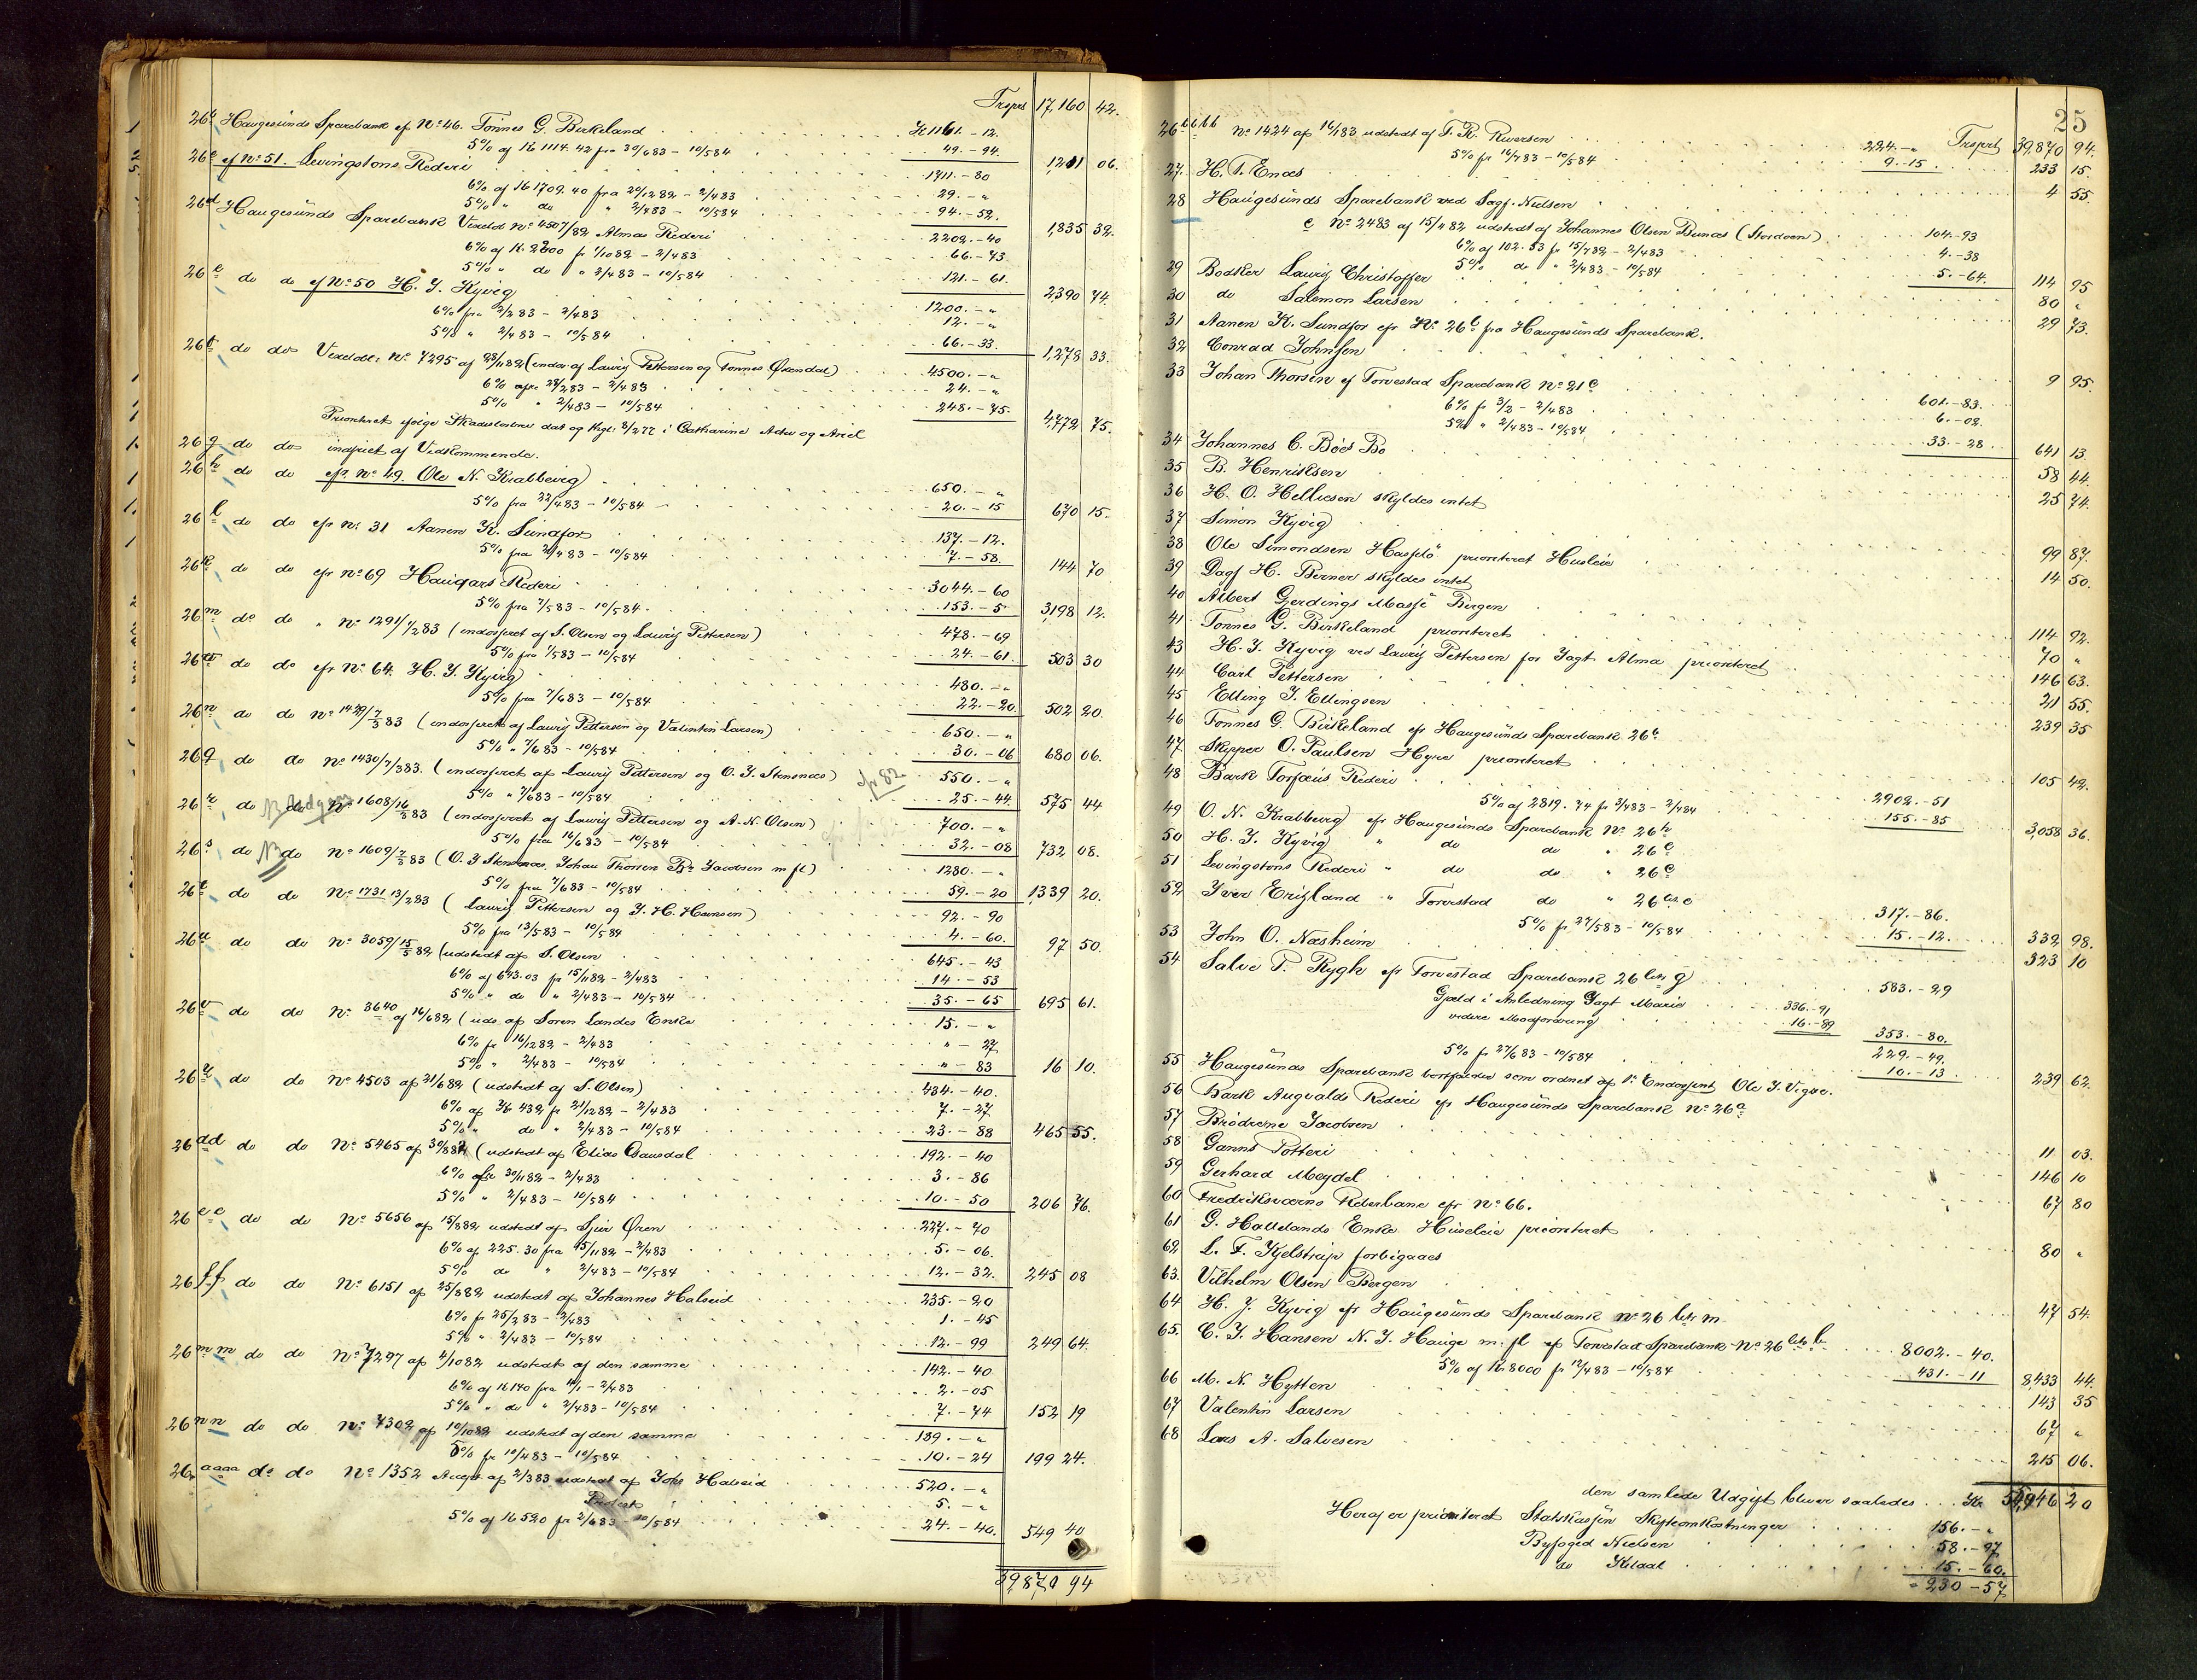 Trsprt 17,160 42.
26b Haugesunds Sparebank cf No 46. Tønnes G. Birkeland Kr 1161.-12.
5% af Kr 1114.42 fra 30/6 83 - 10/5 84 49.-94. 1,211 06.
26c cf No 51. Levingstons Rederi 1711.-80
6% af Kr 1709.40 fra 20/12 82 - 2/4 83 29.-"
5% " do " 2/4 83 - 10/5 84 94.-52. 1,835 32.
26d Haugesunds Sparebank Vexelobl No 4507/82 Almas Rederi 2202.-40
6% af Kr. 2200 fr 1/10 82 - 2/4 83 66.-73.
5% " do " 2/4 83 - 10/5 84 121.-61. 2,390 74.
26e do do cf No 50 H. J. Kyvig 1200.-"
6% fra 2/2 83 - 2/4 83 12.-"
5% " 2/4 83 - 10/5 84 66.-33. 1,278 33.
26f do do Vexelobl: No 7295 af 28/11 82 (endos. af Lauritz Pettersen og Tønnes Øxendal) 4500.-"
6% afr. 28/2 83 - 2/4 83 24.-"
5% " 2/4 83 - 10/5 84 248.-75. 4,772 75.
Prioriteret ifølge Skadesløsbrev dat og tgl. 8/2 77 i Catharine Adve og Ariel
26g do do indfriet af Vedkommende.
26h do do cfr. No 49. Ole N. Krabbevig 650.-"
5% fra 22/4 83 - 10/5 84 20.-15 670 15.
26l do do cfr No 31 Aanen K. Sundfør 137.-12.
5% fra 2/4 83 - 10/5 84 7.-58. 144 70
26k do do cfr No 69 Haugars Rederi 3044.-60
5% fra 7/5 83 - 10/5 84 153.-5" 3,198 12.
26m do do " No 1291 1/2 83 (endosseret af S. Olsen og Lauritz Pettersen) 478.-69
5% fra 7/5 83 - 10/5 84 24.-61. 503 30
26m do do cfr No 64. H. J. Kyvig 480.-"
5% fra 7/6 83 - 10/5 84 22.-20. 502 20.
26n do do No 1429/7/3 83 (endosseret af Lauritz Pettersen og Valentin Larsen) 650.-"
5% " 7/6 83 - 10/5 84 30.-06 680 06.
26q do do No 1430/7/3 83. (endosseret af Lauritz Pettersen og O. J. Stensnæs) cfr 82 550.-"
5% " 7/6 83 - 10/5 84 25.-44. 575 44
26r do do No 1608/16/3 83 (endosseret af Lauritz Pettersen og A. N. Olsen) 700.-"
5% fra 16/6 83 - 10/5 84 32.-08 732 08.
26s do NB do No 1609/7/3 83 (O. J. Stensnæs, Johan Thorsen Br. Jacobsen m fl) 1280.-"
5% fra 7/6 83 - 10/5 84 59.-20 1,339 20.
26t do do No 1731 13/2 83 (Lauritz Pettersen og J. H. Hansen) 92.-90
5% fra 13/5 83 - 10/5 84 4.-60. 97 50.
26u do do No 3059/15/5 82 (udstedt af S. Olsen 645.-43
6% af 643.03 fr 15/11 82 - 2/4 83 14.-53
5% " do " 2/4 83 - 10/5 84 35.-65 695 61.
26v do do No 3640 af 16/6 82 (uds af Søren Landes Enke 15.-"
6% fr 16/12 82 - 2/4 83 "-27
5% " 2/4 83 - 10/5 84 "-83 16 10.
26y do do No 4503 af 21/6 82 (udstedt af S. Olsen) 434.-40.
6% af Kr 432 fr 21/12 82 - 2/4 83 7.-27.
5% " do " 2/4 83 - 10/5 84 23.-88 465 55.
26dd do do No 5465 af 30/8 82 (udstedt af Elias Gausdal 192.-40
6% afr 30/11 82 - 2/4 83 3.-86
5% " 2/4 83 - 10/5 84 10.-50 206 76.
26ee do do No 5656 af 15/8 82 udstedt af Sjur Øren 227.-70
6% af 225.30 fra 15/11 82 - 2/4 83 5.-06.
5% do " 2/4 83 - 10/5 84 12.-32. 245 08
26ff do do No 6151 af 25/8 82 udstedt af Johannes Halseid 235.-20
6% fr 25/2 83 - 2/4 83 1.-45
5% " 2/4 83 - 10/5 84 12.-99 249 64.
26mm do do No 7297 af 4/10 82 udstedt af den samme 142.-40
6% af Kr 140 fra 4/1 - 2/4 83 2.-05
5% " do " 2/4 83 - 10/5 84 7.-74 152 19
26nn do do No 7302 af 10/10 82 udstedt af den samme 189.-"
5% fr 10/4 83 - 10/5 84 10.-24 199 24.
26aaaa do do No 1352 Accept af 2/3 83 udstedt af Johs Halseid 520.-"
Protest 5.-"
5% af Kr 520 fr 2/6 83 - 10/5 84 24.-40. 549 40
39,870 94
25
Trsprt 39,870 94.
26bbbb No 1424 af 16/1 83 udstedt af T. R. Riversen 224.-"
5% fr 16/7 83 - 10/5 84 9.-15. 233 15.
27. H. T. Enæs 4 55.
28 Haugesunds Sparebank ved Sagf. Nielsen
c No 2483 af 15/4 82 udstedt af Johannes Olsen Bunæs (Stordøen) 104.-93
6% af 102.53 fr 15/7 82 - 2/4 83 4.-38
5% do " 2/4 83 - 10/5 84 5.-64. 114 95
29 Bødker Lauritz Christoffer 80 "
30 do Salemon Larsen 29 73.
31 Aanen K. Sundfør cfr No 26l fra Haugesunds Sparebank.
32 Conrad Johnsen 9 95.
33 Johan Thorsen cf Torvestad Sparebank No 21c 601.-83.
6% fr 3/2 - 2/4 83 6.-02.
5% " 2/4 83 - 10/5 84 33.-28 641 13.
34 Johannes C. Bøes Bo 58 44.
35 B. Henriksen 25 74.
36 H. O. Helliesen skyldes intet
37 Simon Kyvig 99 87.
38 Ole Simondsen Hasselø prioriteret Husleie 14 50.
39 Dagf H. Berner skyldes intet
40 Albert Gerdings Masse Bergen 114 92.
41 Tønnes G. Birkeland prioriteret 70 "
43 H. J. Kyvig ved Lauritz Pettersen for Jagt Alma prioriteret 146 63.
44 Carl Pettersen 21 55.
45 Elling J. Ellingsen 239 35
46 Tønnes G. Birkeland cfr Haugesunds Sparebank 26b
47 Skipper O. Paulsen Hyre prioriteret 105 42.
48 Bark Torfæus Rederi 2902.-51
5% af 2819.74 fr 2/4 83 - 2/4 84 155.-85 3,058 36.
49 O. N. Krabbevig cfr Haugesunds Sparebank No 26h
50 H. J. Kyvig " do do " 26e
51 Levingstons Rederi " do do " 26c
52 Iver Eritzland " Torvestad do " 26 litr c 317.-86.
5% fr 27/5 83 - 10/5 84 15.-12. 332 98.
53 John O. Næsheim 323 10
54 Salve P. Rygh cfr Torvestad Sparebank 26 litr g 583.-29
Gjæld i Anledning Jagt Marie 336.-91
videre Modfordring 16.-89 353.-80.
229.-49.
5% fr 27/6 83 - 10/5 84 10.-13 239 62.
55 Haugesunds Sparebank bortfalder som ordnet af 1ste Endossent Ole J. Vigse.
56 Bark Augvalds Rederi cfr Haugesunds Sparebank No 26a
57 Brødrene Jacobsen 11 03.
58 Ganns Potteri 146 10
59 Gerhard Meydel 67 80
60 Fredriksværns Reberbane cfr No 66.
61 G. Hallelands Enke Husleie prioriteret 80 "
62 L. F. Kjelstrup forbigaaes
63. Vilhelm Olsen Bergen 47 54.
64 H. J. Kyvig cfr Haugesunds Sparebank No 26 litr m
65. C. J. Hansen N. J. Hauge m. fl cf Torvestad Sparebank No 26 litr b 8002.-40.
5% af Kr. 8000 fr 12/4 83 - 10/5 84 431.-11 8,433 44.
66 M. N. Hytten 143 35
67 Valentin Larsen 67 "
68 Lars A. Salvesen 215 06.
den samlede Udgift bliver saaledes Kr 54,946 20
Heraf er prioriteret Statskassen Skifteomkostninger 156.-"
Byfoged Nielsen 58.-97
do Kildal 15.-60.
" 230-57